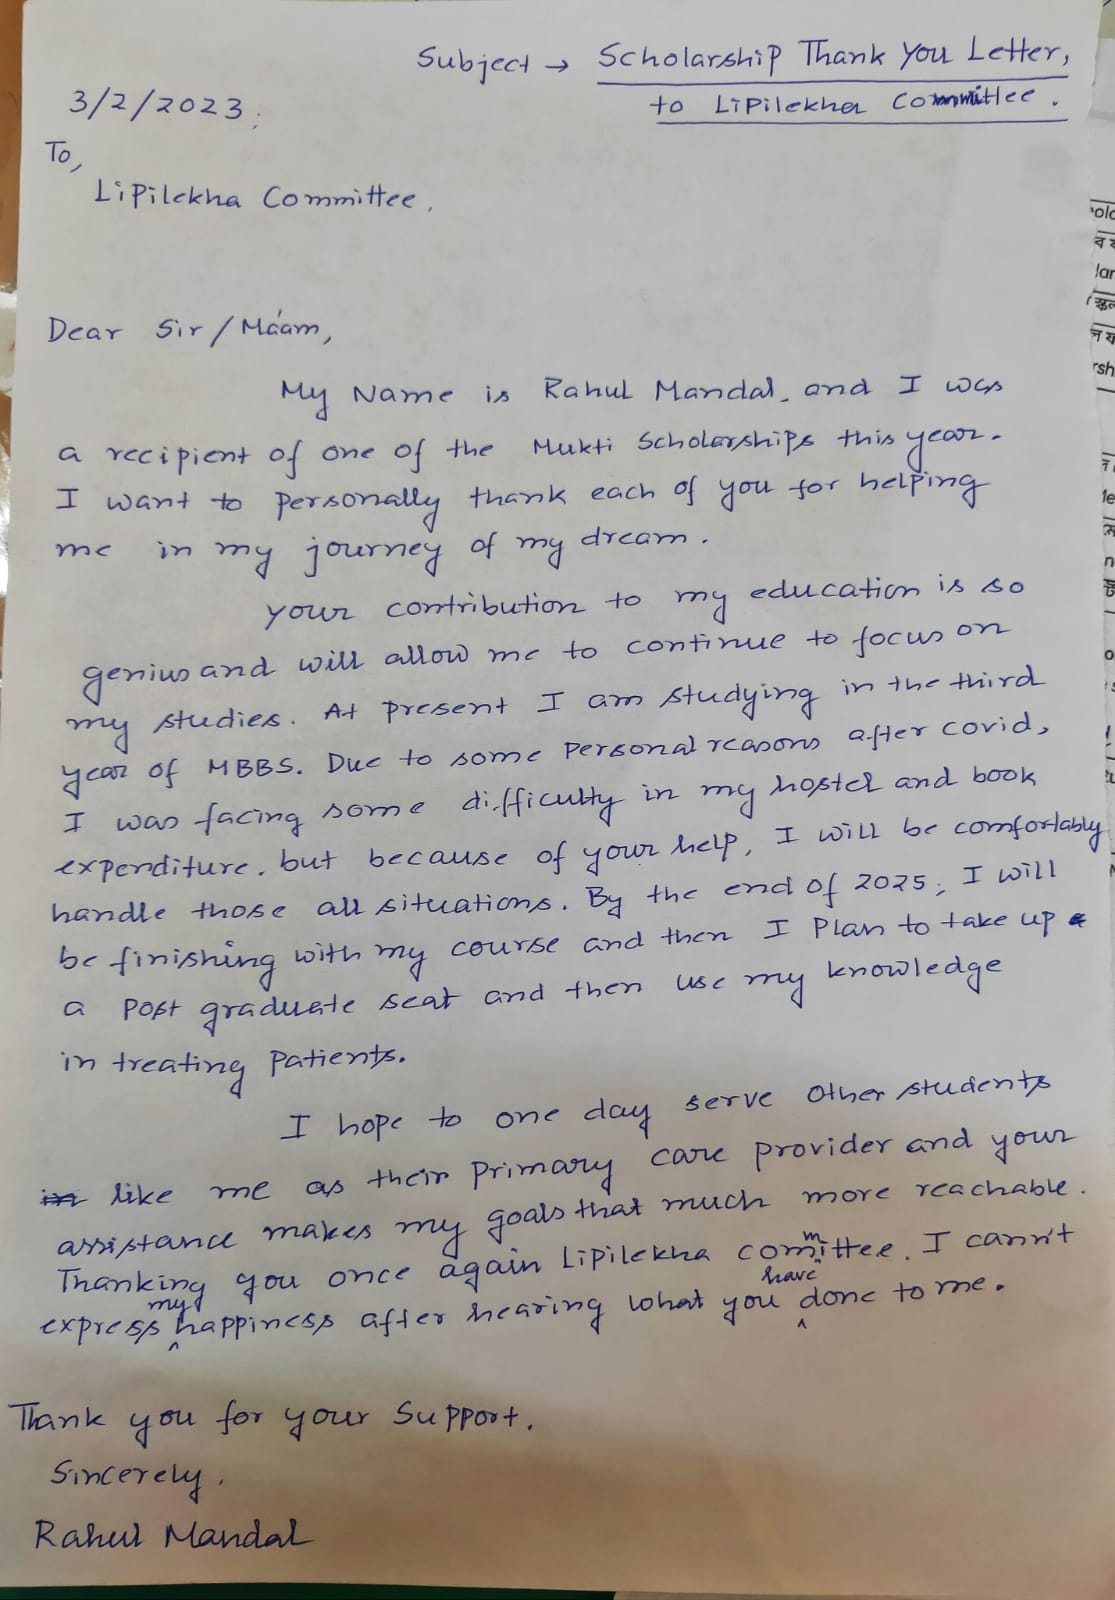 Subject → Scholarship Thank You Letter,
to Lipilekha Committee.
3/2/2023.
To,
Lipilekha Committee,
Dear Sir/Ma'am,
My Name is Rahul Mandal, and I was
a recipient of one of the Mukti Scholarships this year.
I want to personally thank each of you for helping
me in my journey of my dream.
Your contribution to my education is so
genius and will allow me to continue to focus on
my studies. At present I am studying in the third
year of MBBS. Due to some personal reasons after covid,
I was facing some difficulty in my hostel and book
expenditure. but because of your help, I will be comfortably
handle those all situations. By the end of 2025, I will
be finishing with my course and then I Plan to take up
a post graduate seat and then use my knowledge
in treating patients.
I hope to one day serve other students
like me as their primary care provider and your
assistance makes my goals that much more reachable.
Thanking you once again Lipilekha committee. I cann't
express my happiness after hearing what you have done to me.
Thank you for your Support.
Sincerely,
Rahul Mandal